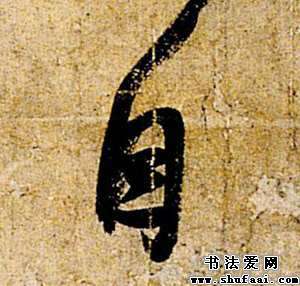 自
书法爱网
www.shufaai.com